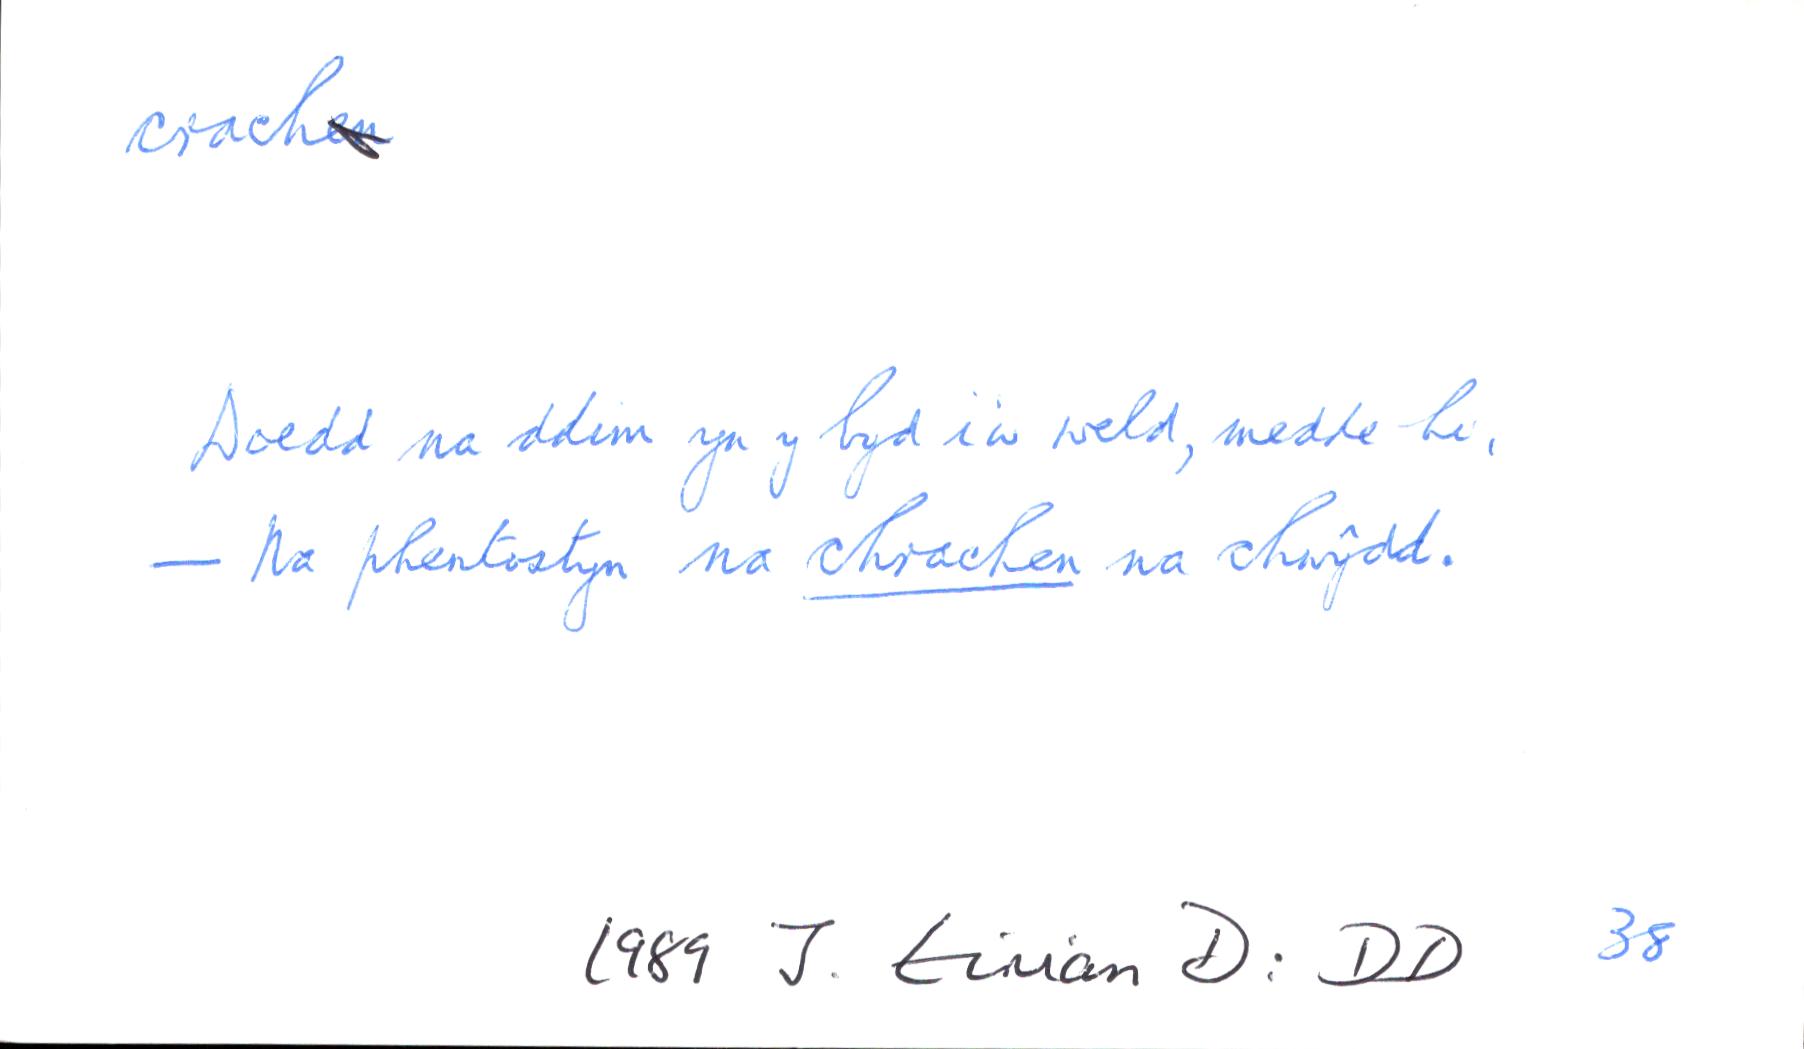 crachen
Doedd na ddim yn y byd i'w weld, medde hi,
— Na phentostyn na chrachen na chwŷdd.
1989 J. Eirian D: DD 38